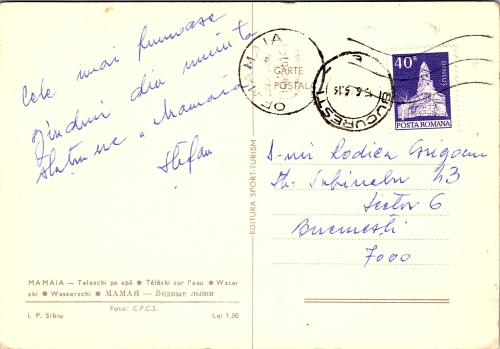 Cele mai frumoase
gînduri din minunata
stațiune "Mamaia"
Ștefan
MAMAIA — Teleschi pe apă ● Téléski sur l'eau ● Water
ski ● Wasserschi ● МАМАЯ — Водные лыжи
Foto: C.P.C.S.
I. P. Sibiu
Lei 1,50
EDITURA SPORT-TURISM
CARTE
POSTALĂ
MAMAIA
BUCUREȘTI
40B
DENSUȘ
POSTA ROMANA
D-nei Rodica Grigoriu
43
Sector 6
București
7000